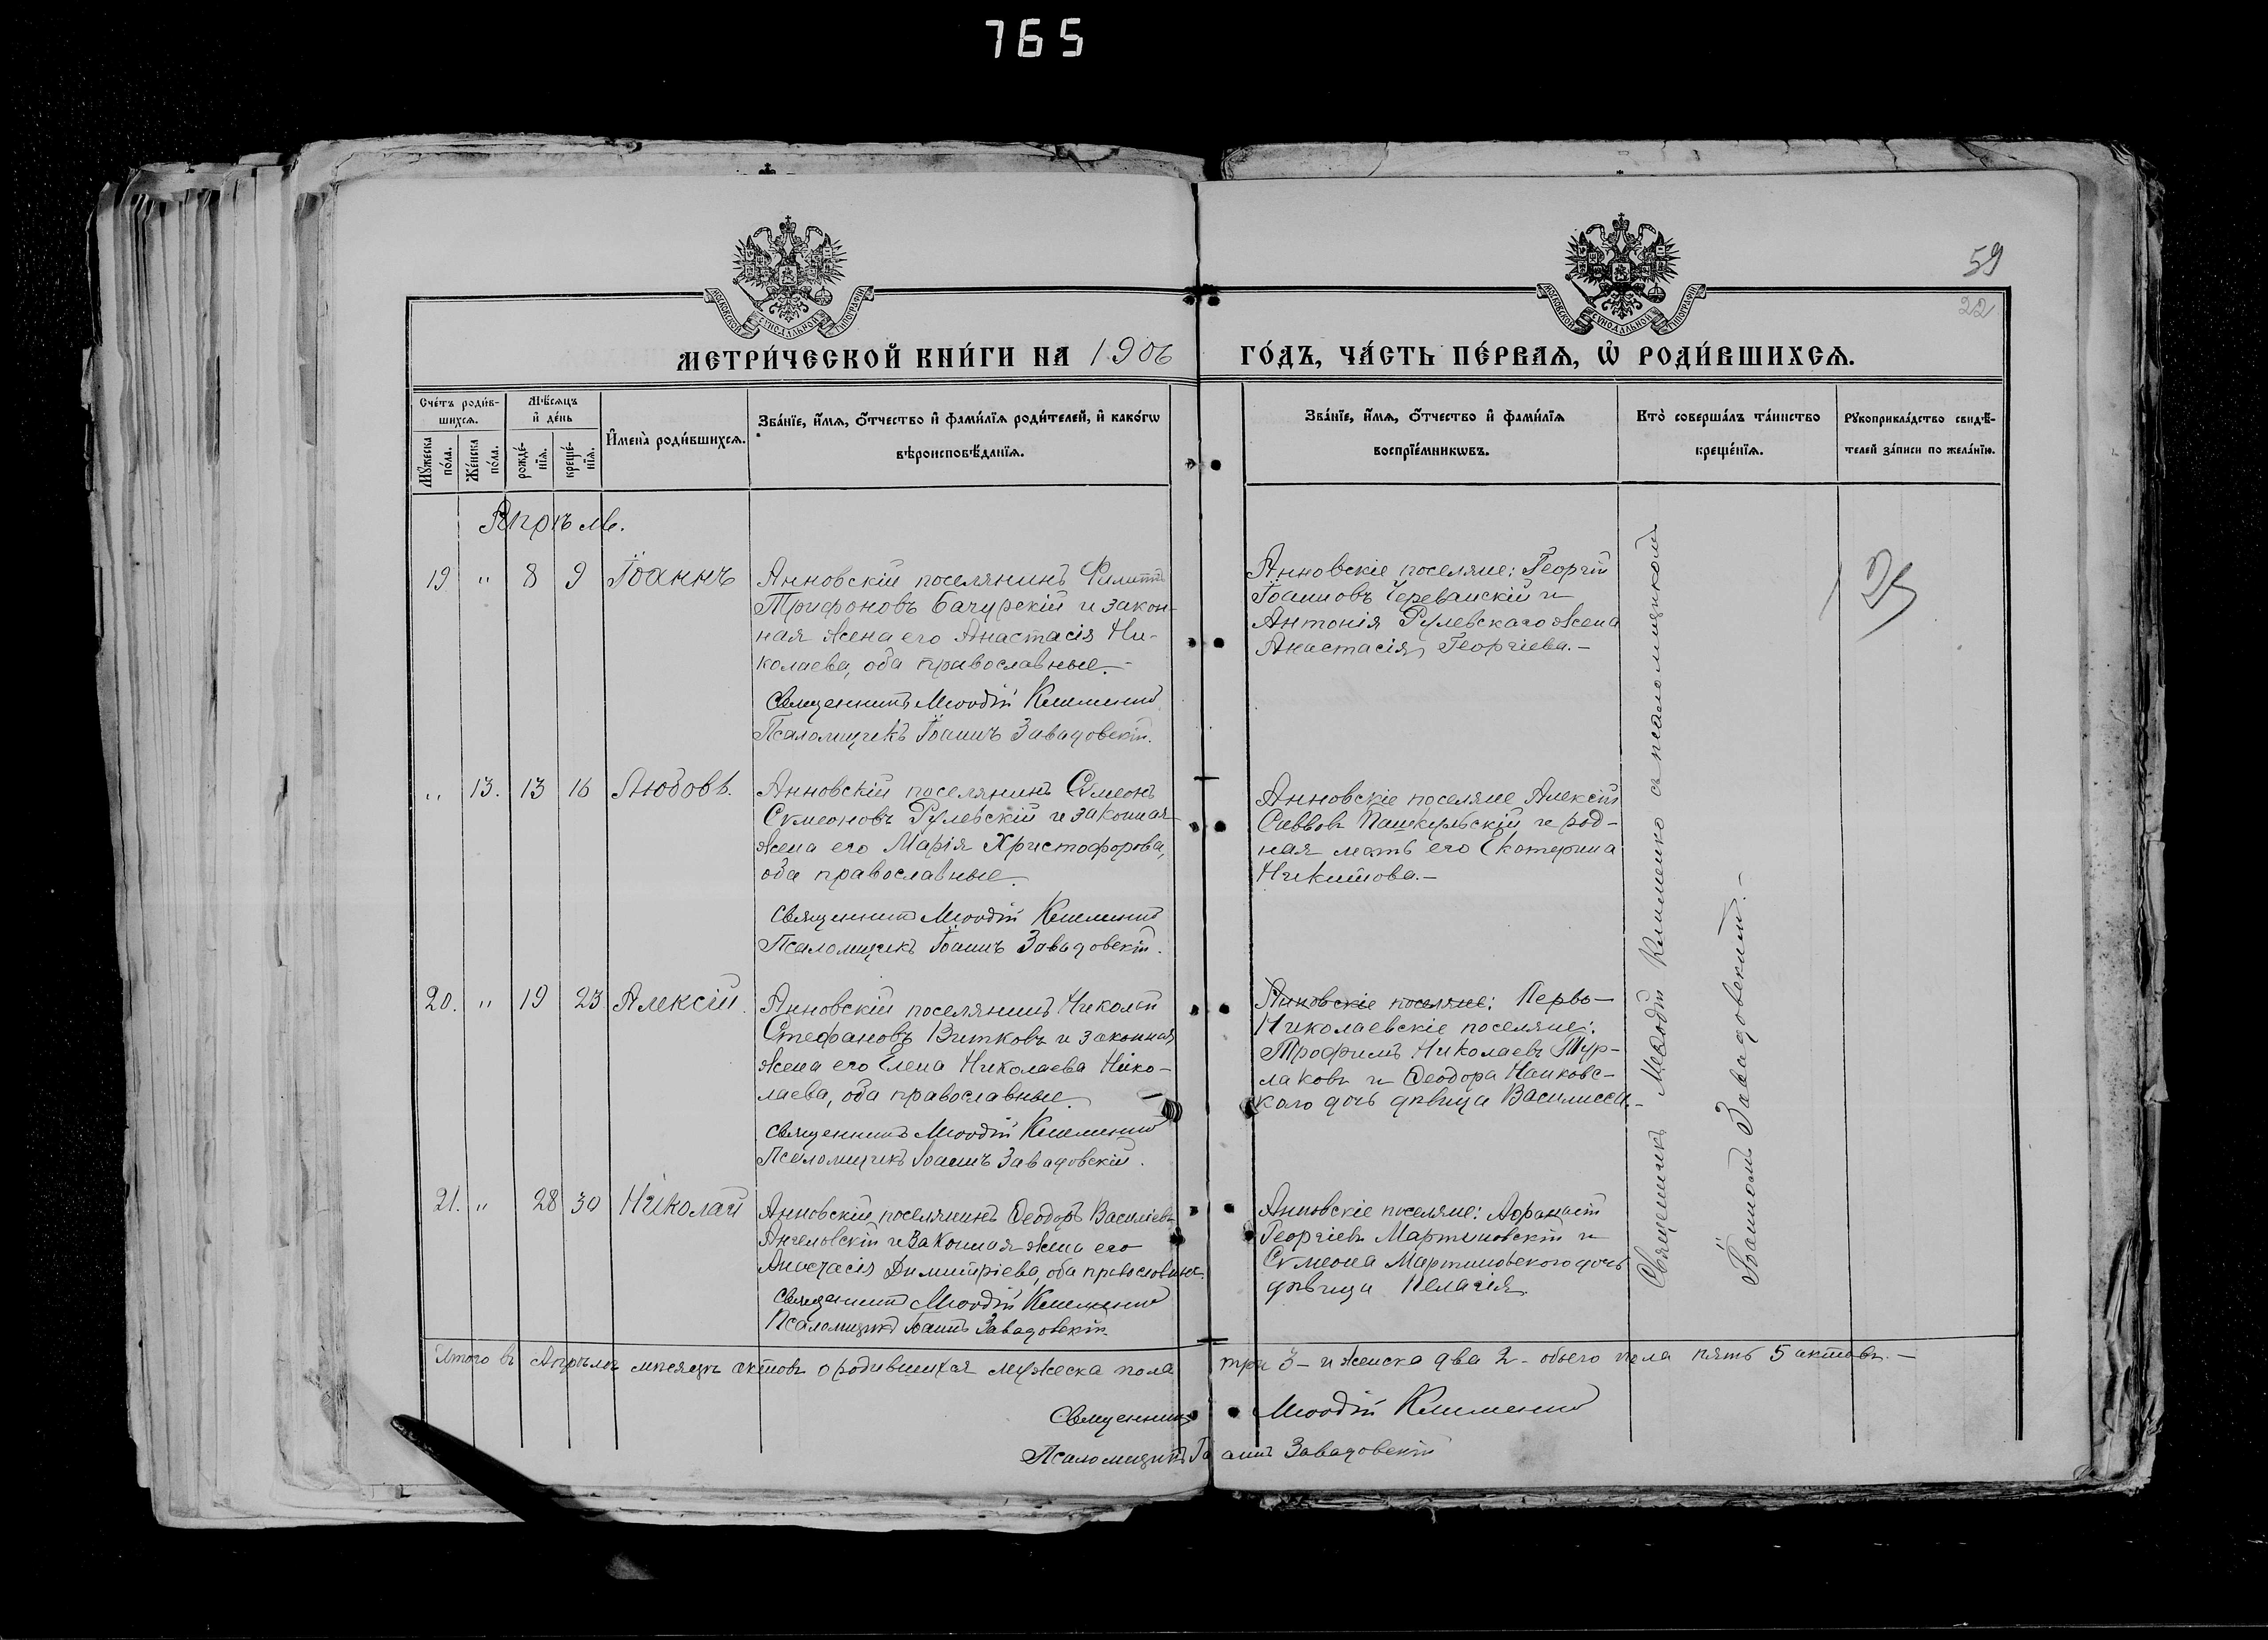 765
59
22
МЕТРИ́ЧЕСКОЙ КНИ́ГИ НА 1906 ГО́ДЪ, ЧА́СТЬ ПЕ́РВАѦ, Ѡ҆ РОДИ́ВШИХСѦ.
МОСКОВСКОЙ СѴНОДАЛЬНОЙ ТИПОГРАФІИ
МОСКОВСКОЙ СѴНОДАЛЬНОЙ ТИПОГРАФІИ
Сче́тъ роди́в-
шихсѧ.
Мꙋ́жеска по́ла.
Же́нска по́ла.
Мѣ́сѧцъ
и҆ де́нь
рожде́-
нїѧ.
креще́-
нїѧ.
И҆мена̀ роди́вшихсѧ.
Зва́нїе, и҆́мѧ, ѻ҆́тчество и҆ фами́лїѧ роди́телей, и҆ како́гѡ
вѣроисповѣ́данїѧ.
Зва́нїе, и҆́мѧ, ѻ҆́тчество и҆ фами́лїѧ
воспрїе́мникѡвъ.
Кто̀ соверша́лъ та́инство
креще́нїѧ.
Рꙋкоприкла́дство свидѣ́-
телей за́писи по жела́нїю.
Апрѣль.
19 " 8 9 Іоаннъ
Анновскій поселянинъ Филиппъ
Трифоновъ Бачурскій и закон-
ная жена его Анастасія Ни-
колаева, оба православные.-
Священникъ Меѳодій Клименко
Псаломщикъ Іоаннъ Завадовскій.
Анновскіе поселяне: Георгій
Іоанновъ Череванскій и
Антонія Рулевскаго жена
Анастасія Георгіева.-
" 13. 13 16 Любовь.
Анновскій поселянинъ Сѵмеонъ
Сѵмеоновъ Рулевскій и законная
жена его Марія Христофорова,
оба православные.
Священникъ Меѳодій Клименко
Псаломщикъ Іоаннъ Завадовскій.
Анновскіе поселяне Алексій
Саввовъ Пашкульскій и род-
ная мать его Екатерина
Никитова.-
20. " 19 23 Алексій.
Анновскій поселянинъ Николай
Стефановъ Витковъ и законная
жена его Елена Николаева Нико-
лаева, оба православные.
Священникъ Меѳодій Клименко
Псаломщикъ Іоаннъ Завадовскій.
Анновскіе поселяне: Перво-
Николаевскіе поселяне:
Трофимъ Николаевъ Тур-
лаковъ и Ѳеодора Наиковс-
каго дочь дѣвица Василисса.-
21. " 28 30 Николай
Анновскій поселянинъ Ѳеодоръ Василіевъ
Ангеловскій и законная жена его
Анастасія Димитріева, оба православные.
Священникъ Меѳодій Клименко
Псаломщикъ Іоаннъ Завадовскій.
Анновскіе поселяне: Аѳанасій
Георгіевъ Мартиновскій и
Сѵмеона Мартиновскаго дочь
дѣвица Пелагія.
Священникъ Меѳодій Клименко съ псаломщикомъ
Іоанномъ Завадовскимъ.-
Итого въ Апрѣлѣ мѣсяцѣ актовъ о родившихся мужеска пола три 3- и женска два 2- обоего пола пять 5 актовъ.-
Священникъ Меѳодій Клименко
Псаломщикъ Іоаннъ Завадовскій